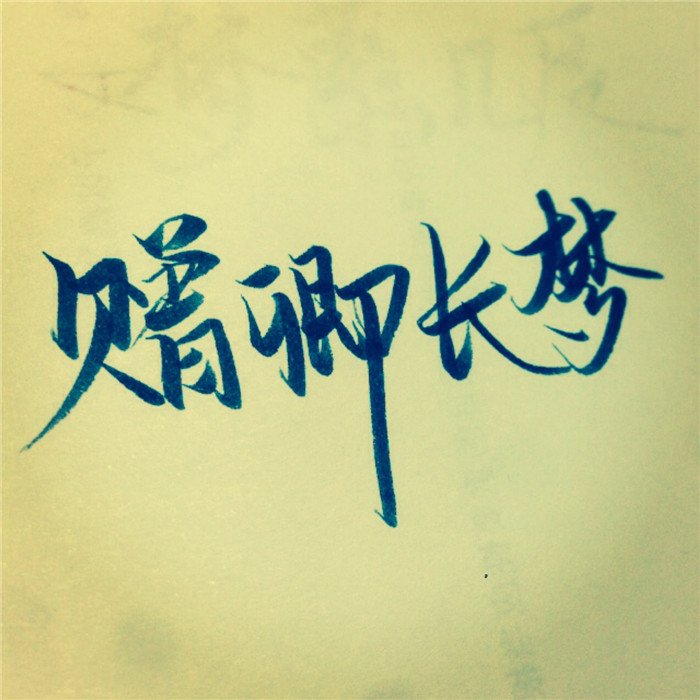 赠卿长梦